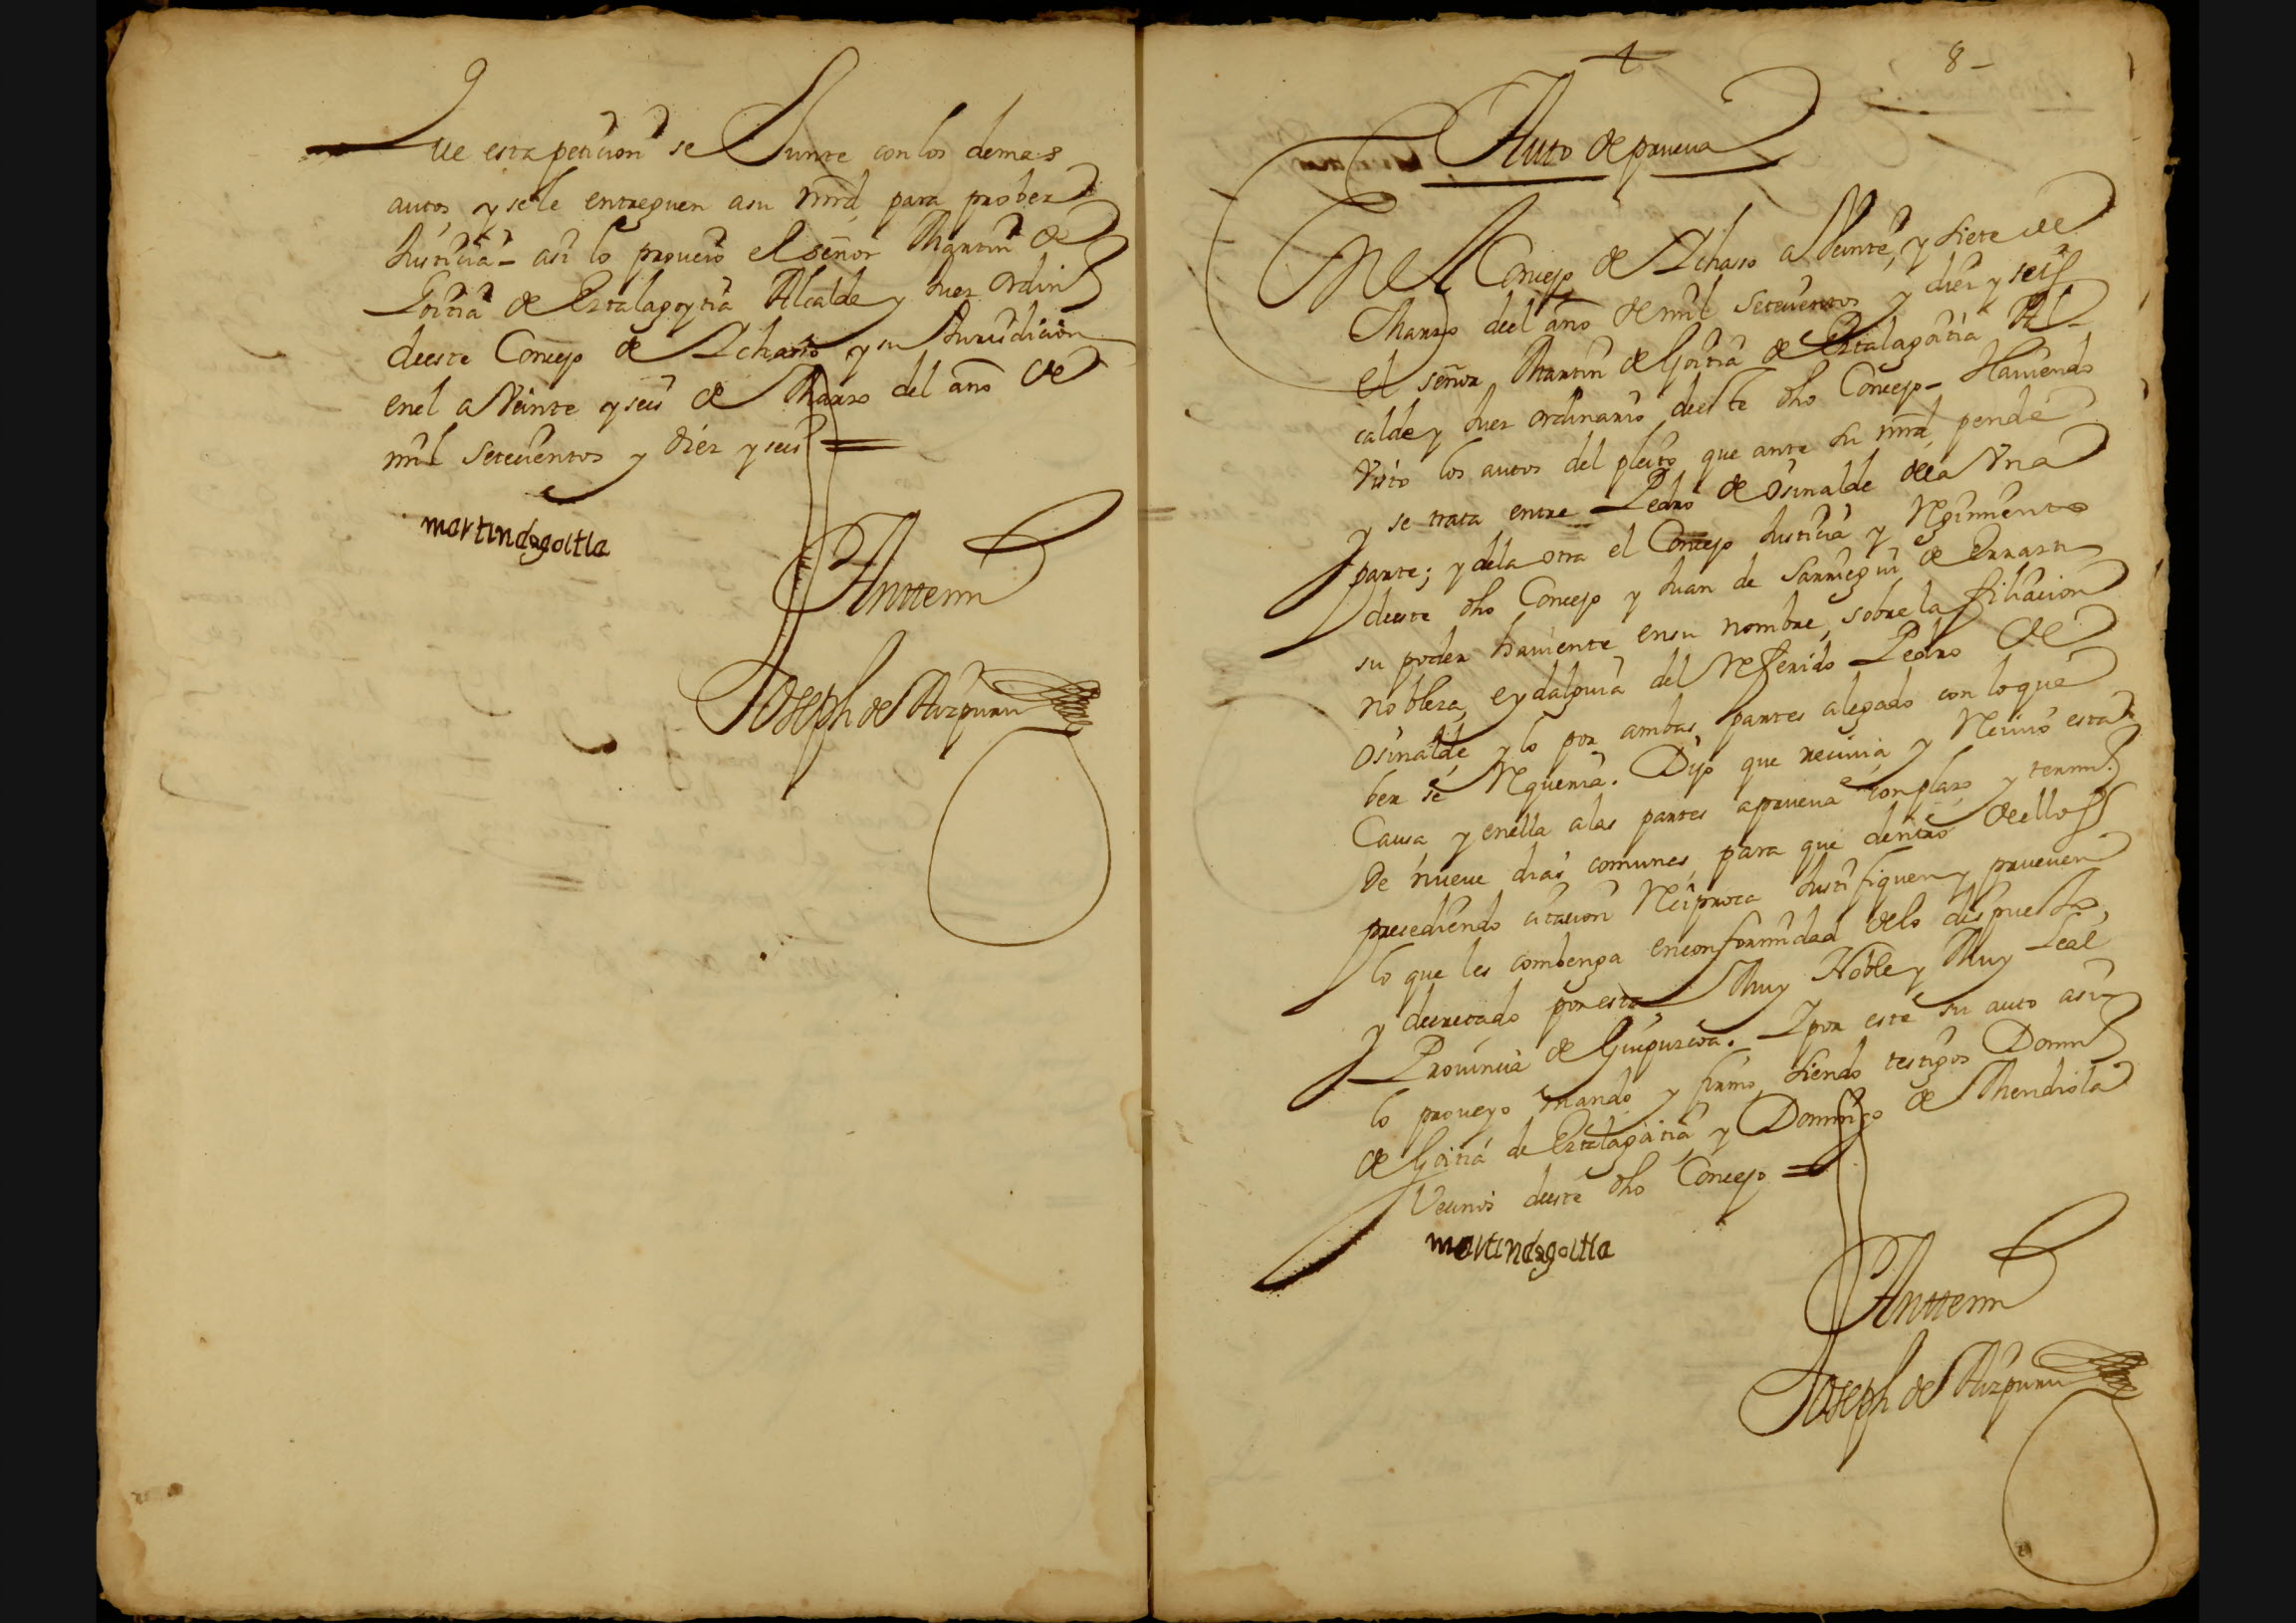 Que esta peticion se Junte con los demas
autos, y se le entreguen a su mrd, para prober
Justicia - asi lo proueio el señor Martin de
Goitia de Ertalagoytia Alcalde y Juez ordino
deeste Concejo de Ichasso y su Jurisdicion
enel a Veinte y seis de Marzo del año de
mil setecientos y diez y seis =
martin de goitia
Anttemi
Joseph de Aizpuru
8-
Auto de prueua
En el Concejo de Ichaso a Veinte, y siete de
Marzo deel año de mil setecientos y diez y seis
el señor Martin de Goitia de Ertalagoitia Al-
calde y Juez ordinario deeste dho Concejo - Hauiendo
Visto los autos del pleito que ante su mrd, pende
y se trata entre Pedro de Osinalde dela Vna
parte; y dela otra el Concejo Justicia y Regimiento
deeste dho Concejo y Juan de Sarriegui de Errasti
su poder hauiente ensu nombre, sobre la filiacion
nobleza, eydalguia del Referido Pedro de
Osinalde, y lo por ambas, partes alegado con loque
ber se Requeria. Dijo que reciuia y Reciuio esta
Causa y enella alas partes aprueua con plazo y termino
De nueue dias comunes, para que dentro deellos
precediendo citacion Reciproca Justifiquen y prueuen
lo que les combenga enconformidad delo dispuesto,
y decretado por esta Muy Noble y Muy Leal
Prouincia de Guipuzcoa. Y por este su auto asi
lo proueyo mando y firmo, siendo testigos Domingo
de Goitia de Ertalagoitia y Domingo de Mendiola
Vecinos deeste dho Concejo =
martin de goitia
Anttemi
Joseph de Aizpuru